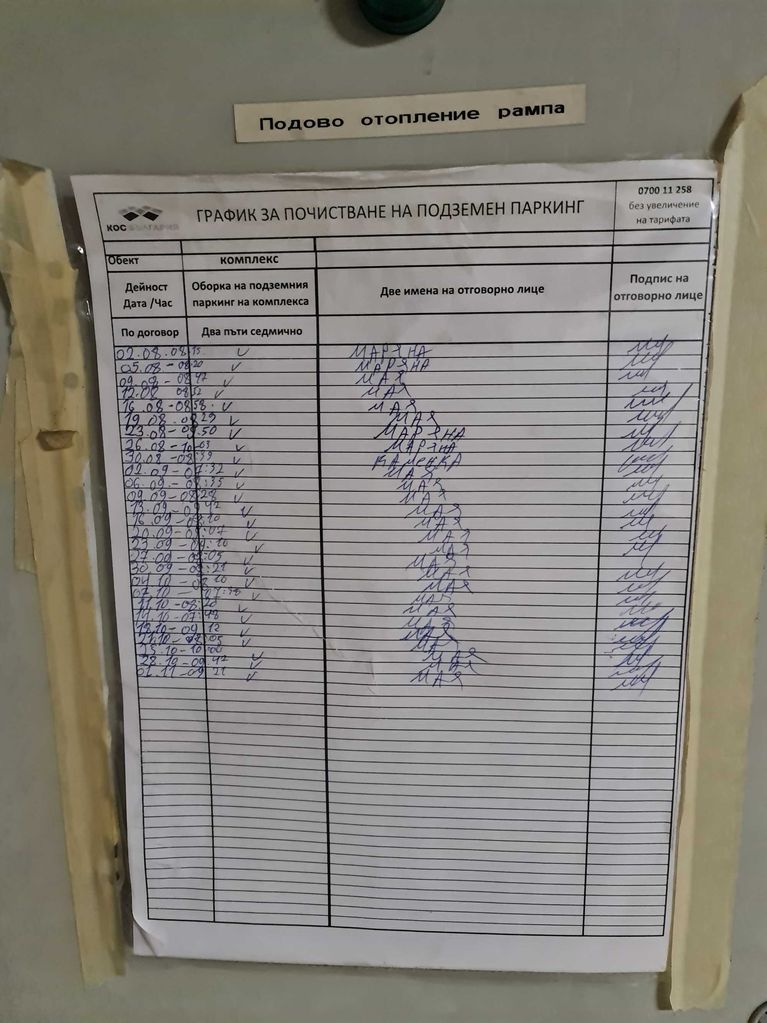 Подово отопление рампа
КОС БЪЛГАРИЯ
ГРАФИК ЗА ПОЧИСТВАНЕ НА ПОДЗЕМЕН ПАРКИНГ
0700 11 258
без увеличение
на тарифата
Обект комплекс
Дейност
Дата /Час
Оборка на подземния
паркинг на комплекса
Две имена на отговорно лице
Подпис на
отговорно лице
По договор Два пъти седмично
02.08. 08:15 ✓ МАРЯНА
05.08 - 08:20 ✓ МАРЯНА
09.08 - 08:47 ✓ МАЯ
12.08 08:52 ✓ МАЯ
16.08 - 08:58 ✓ МАЯ
19.08. 08:29 ✓ МАЯ
23.08 - 09:50 ✓ МАРЯНА
26.08 - 10:03 ✓ МАРЯНА
30.08 - 08:39 ✓
02.09 - 07:32 ✓ МАЯ
06.09 - 08:35 ✓ МАЯ
09.09 - 08:28 ✓ МАЯ
13.09 - 09:42 ✓ МАЯ
16.09 - 09:10 ✓ МАЯ
20.09 - 09:07 ✓ МАЯ
23.09 - 09:10 ✓ МАЯ
27.09 - 08:05 ✓ МАЯ
30.09 - 08:21 ✓ МАЯ
04.10 - 08:20 ✓ МАЯ
07.10 - 07:58 ✓ МАЯ
11.10 - 08:20 ✓ МАЯ
14.10 - 07:48 ✓ МАЯ
18.10 - 09:12 ✓ МАЯ
21.10 - 08:05 ✓ МАЯ
25.10 - 10:00 МАЯ
28.10 - 09:42 ✓ МАЯ
01.11 - 09:21 ✓ МАЯ